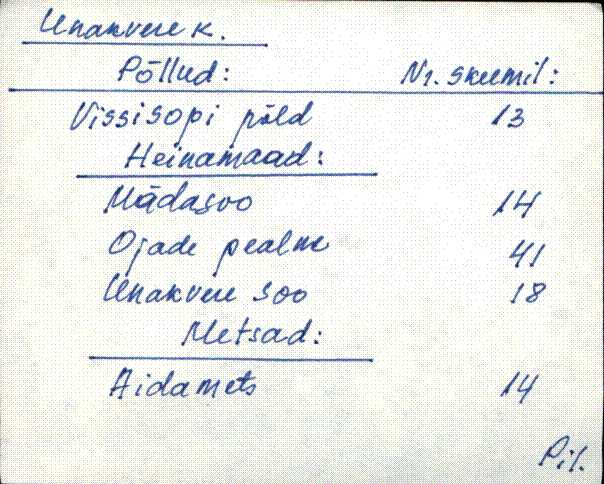 Unakvere k.
Põllud: Nr. skeemil:
Vissisopi põld 13
Heinamaad:
Mädasoo 14
Ojade pealne 41
Unakvere soo 18
Metsad:
Aidamets 14
Pil.